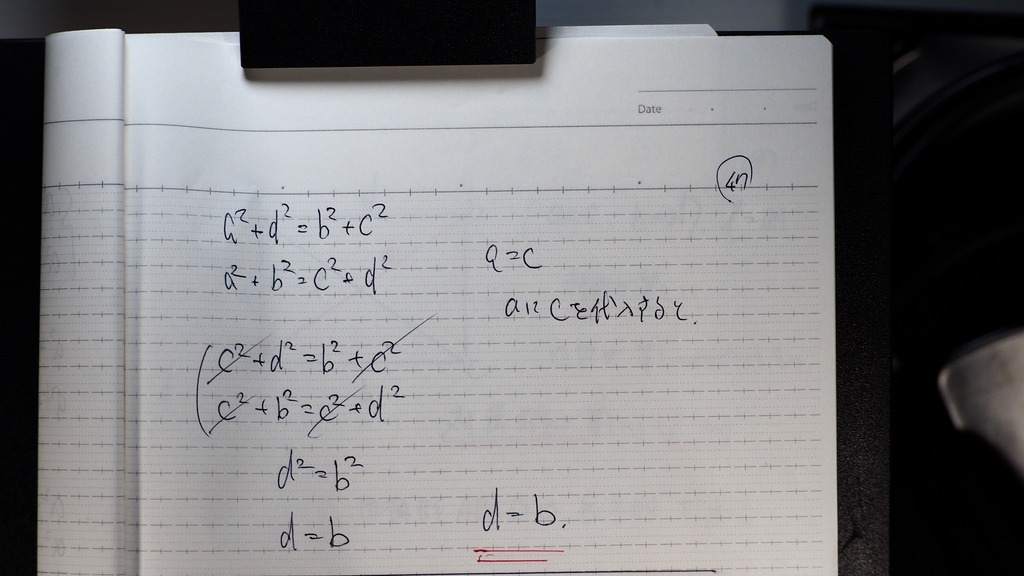 Date
4n
a²+d²=b²+c²
a²+b²=c²+d²
a=c
aにcを代入すると.
c²+d²=b²+c²
c²+b²=c²+d²
d²=b²
d=b
d=b.